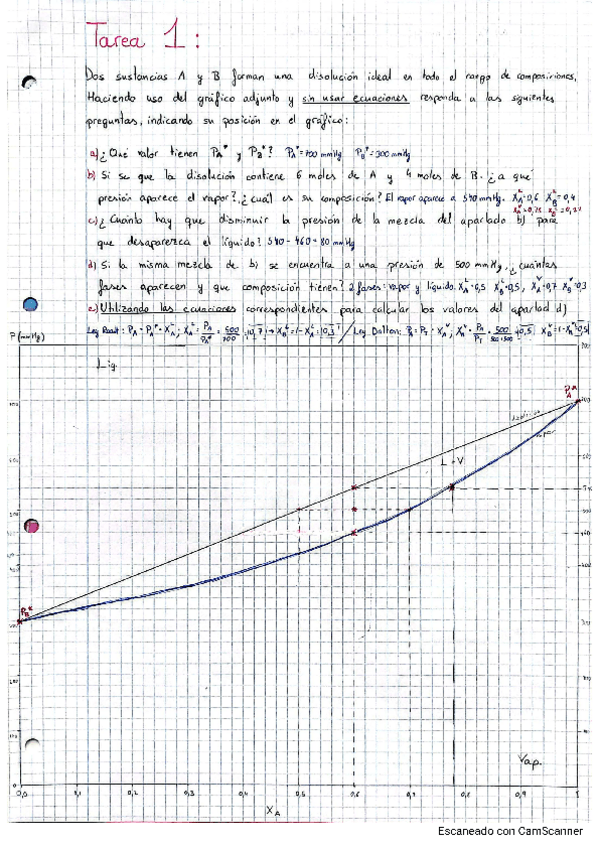 Tarea 1:
Dos sustancias A y B forman una disolución ideal en todo el rango de composiciones.
Haciendo uso del gráfico adjunto y sin usar ecuaciones responda a las siguientes
preguntas, indicando su posición en el gráfico:
a) ¿Qué valor tienen PA* y PB*? PA*=700 mmHg PB*=300 mmHg
b) Si se que la disolución contiene 6 moles de A y 4 moles de B. ¿a que
presión aparece el vapor?, ¿cuál es su composición? El vapor aparece a 540 mmHg.
c) ¿Cuánto hay que disminuir la presión de la mezcla del apartado b) para
que desaparezca el líquido? 540-460=80 mmHg
d) Si la misma mezcla de b) se encuentra a una presión de 500 mmHg, ¿cuántas
fases aparecen y que composición tienen? 2 fases: vapor y líquido.
e) Utilizando las ecuaciones correspondientes para calcular los valores del apartad d)
P (mmHg)
Liq.
PA*
L+V
PB*
Vap.
0,0 0,1 0,2 0,3 0,4 0,5 0,6 0,7 0,8 0,9 1
XA
Escaneado con CamScanner